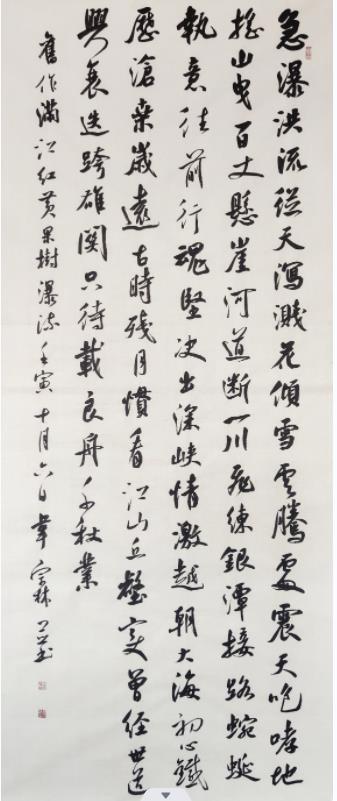 急瀑洪流從天瀉濺花傾雪雲騰處震天咆哮地
搖山曳百丈懸崖河道斷一川飛練銀潭接路蜿蜒
執意往前行魂堅決出深峽情激越朝大海初心鐵
歷滄桑歲遠古時殘月慣看江山丘壑變曾經世道
興衰迭跨雄關只待載良舟千秋業
舊作滿江紅黃果樹瀑流壬寅十月六日韋宗林並書